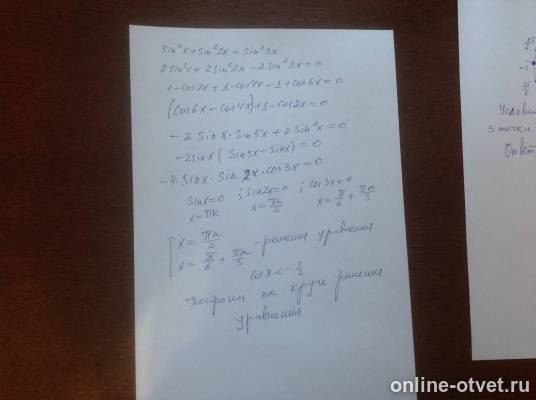 sin²x + sin²2x = sin²3x
2sin²x + 2sin²2x - 2sin²3x = 0
1 - cos2x + 1 - cos4x - 1 + cos6x = 0
(cos6x - cos4x) + 1 - cos2x = 0
- 2 sinx · sin5x + 2 sin²x = 0
- 2sinx ( sin5x - sinx) = 0
- 4 · sinx · sin 2x · cos3x = 0
sinx = 0 ; sin2x = 0 ; cos3x = 0
x = πk x = πk/2 x = π/6 + πm/3
[ x = πn/2
x = π/6 + πm/3 - решения уравнения
cosx < - 1/2
Построим на круге решения
уравнения
Условии
3 точки
Ответ
online-otvet.ru